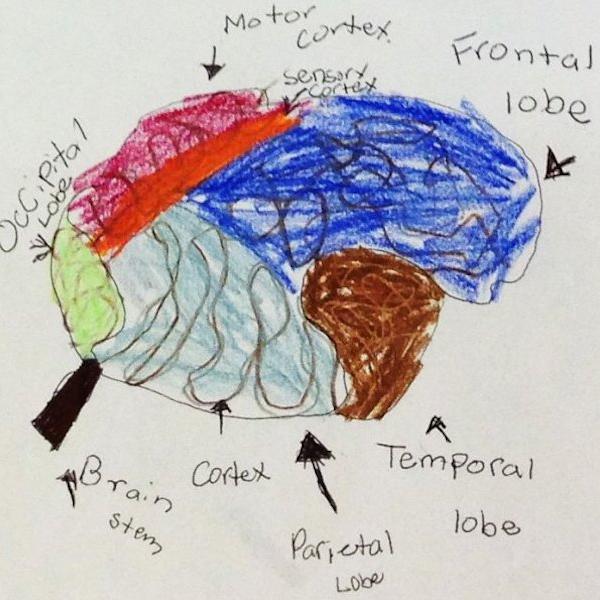 Motor
cortex.
Frontal
lobe
sensory
cortex
Occipital
Lobe
Brain
stem
Cortex
Parietal
Lobe
Temporal
lobe